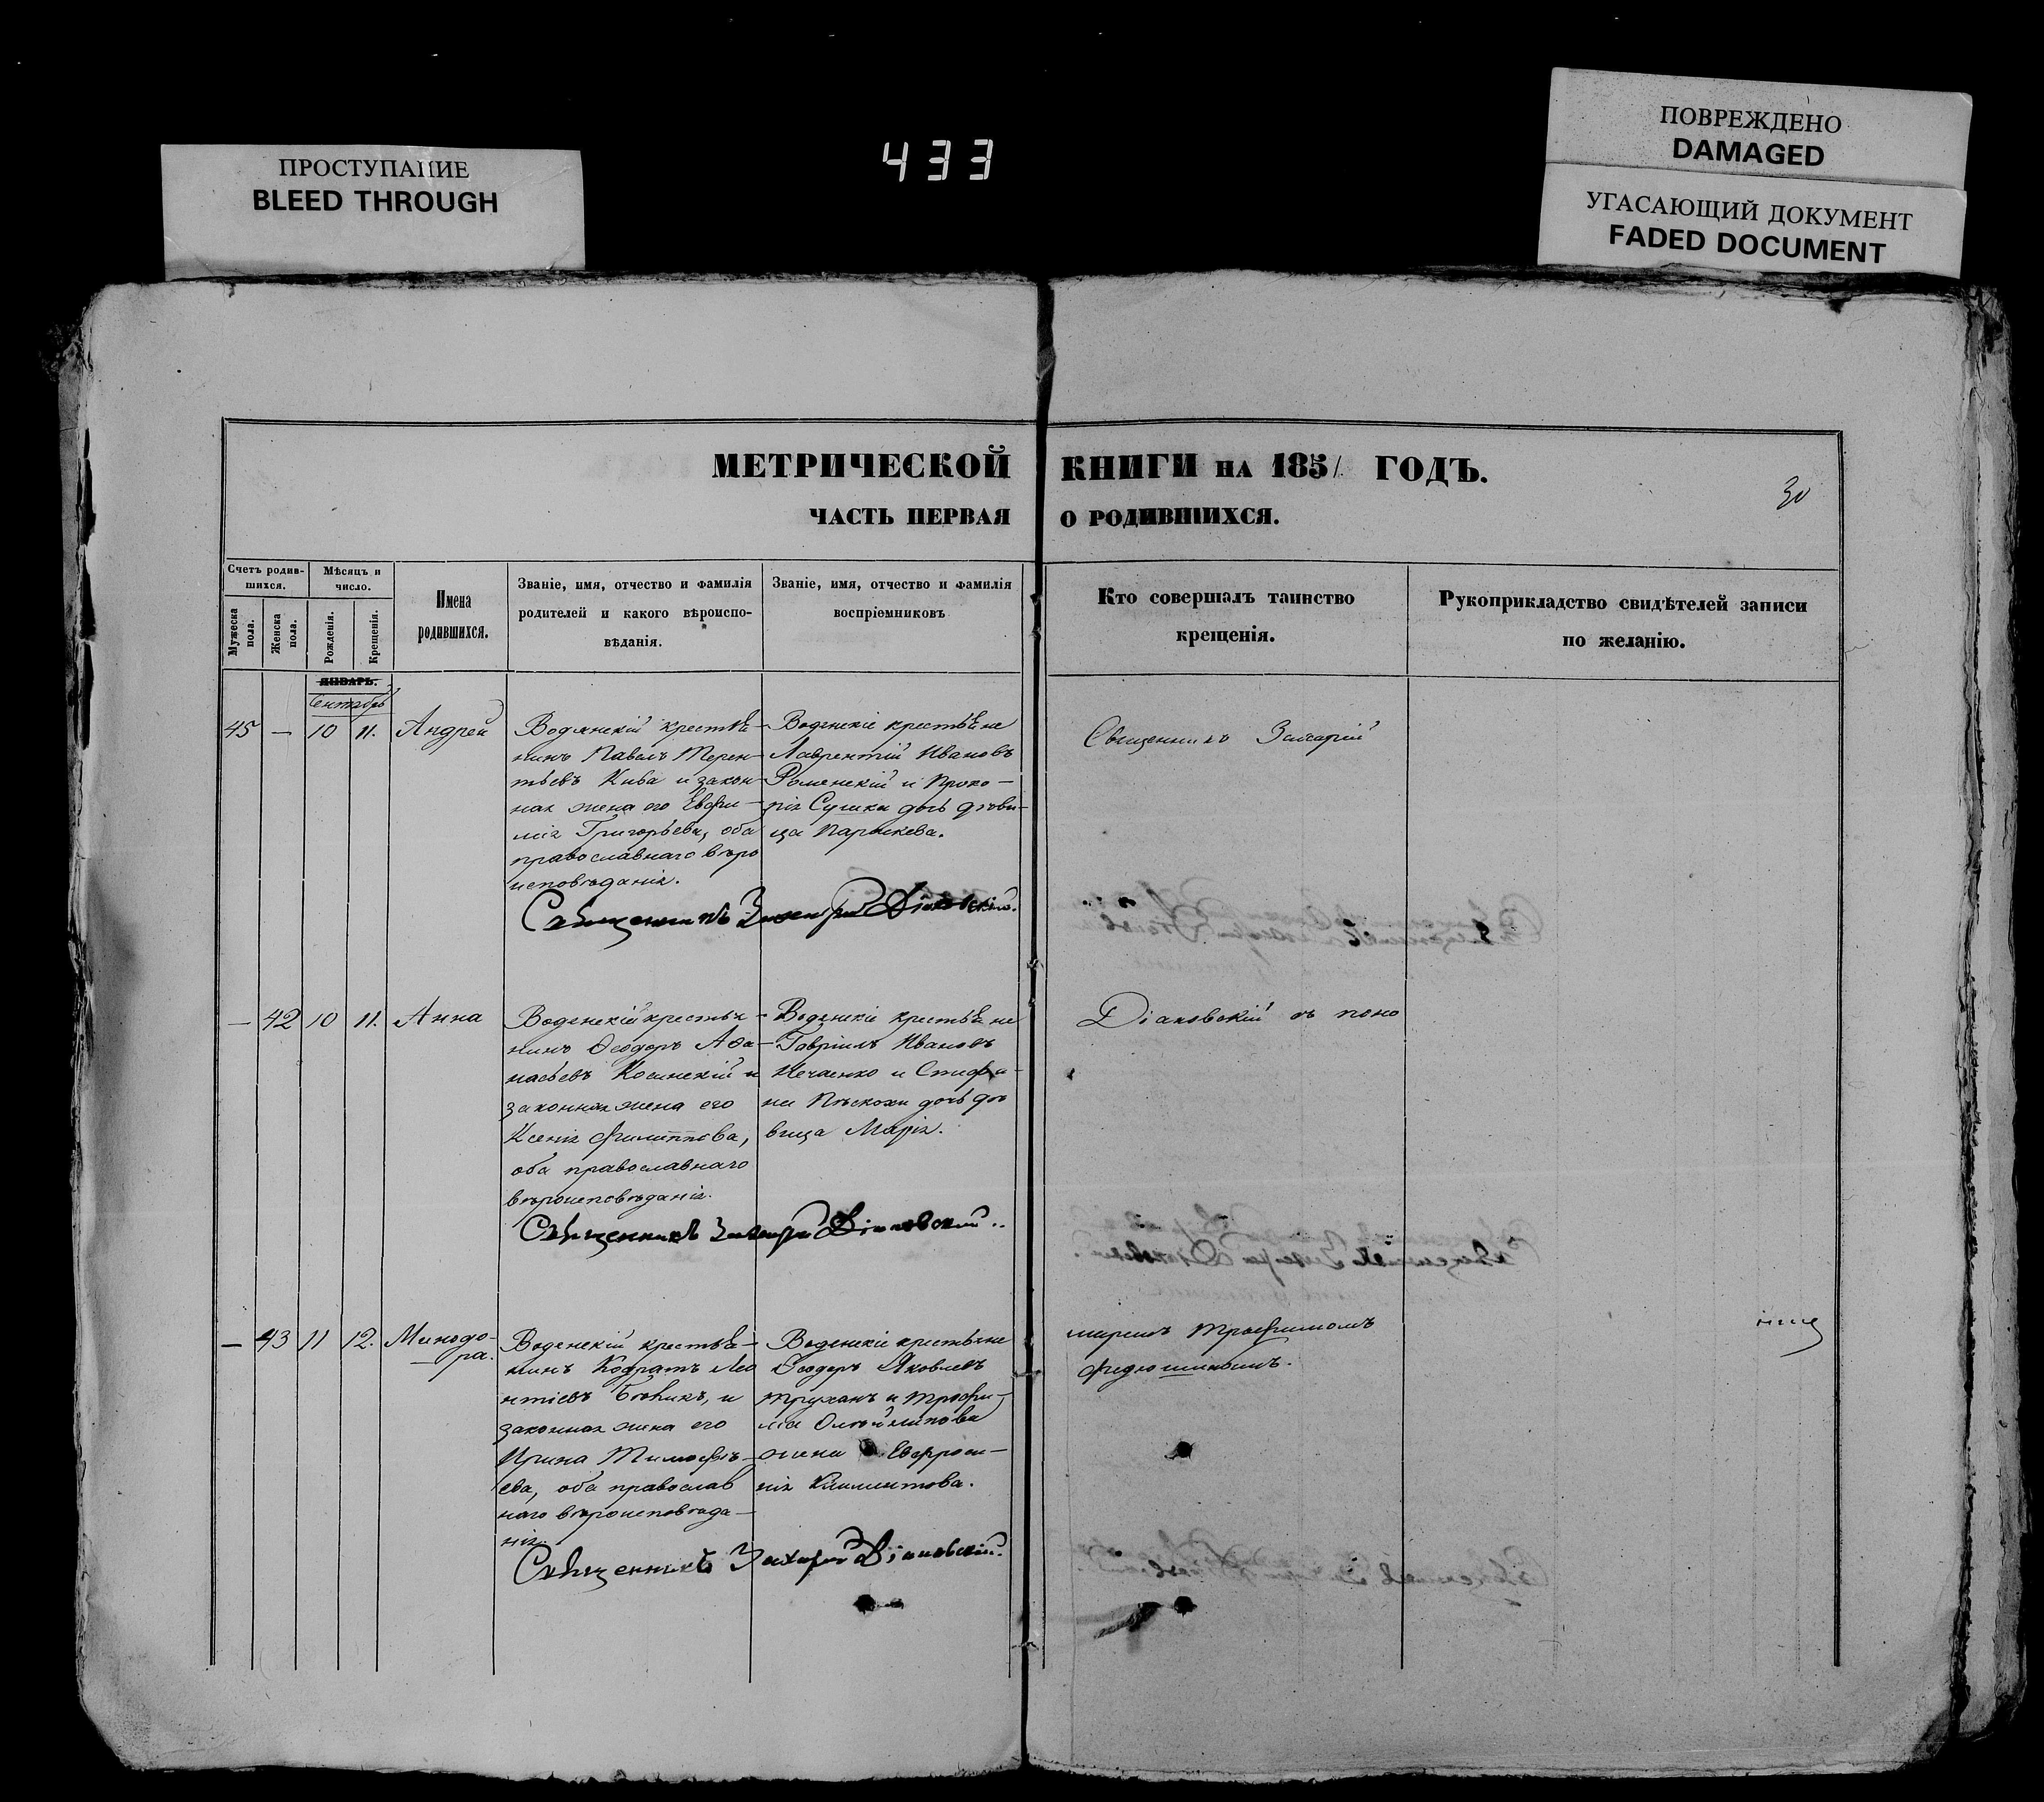 ПРОСТУПАНИЕ
BLEED THROUGH
433
ПОВРЕЖДЕНО
DAMAGED
УГАСАЮЩИЙ ДОКУМЕНТ
FADED DOCUMENT
МЕТРИЧЕСКОЙ КНИГИ НА 1851 ГОДЪ.
30
ЧАСТЬ ПЕРВАЯ О РОДИВШИХСЯ.
Счетъ родив-
шихся.
Мужеска
пола.
Женска
пола.
Мѣсяцъ и
число.
Рожденія.
Крещенія.
Имена
родившихся.
Званіе, имя, отчество и фамилія
родителей и какого вѣроиспо-
вѣданія.
Званіе, имя, отчество и фамилія
воспріемниковъ
Кто совершалъ таинство
крещенія.
Рукоприкладство свидѣтелей записи
по желанію.
ЯНВАРЬ.
Сентябрь
45 — 10 11. Андрей
Водянскій крестья-
нинъ Павелъ Терен-
тьевъ Кива и закон-
ная жена его Евфи-
мія Григорьева, оба
православнаго вѣро
исповѣданія.
Водянскіе крестьяне
Лаврентій Ивановъ
Роменскій и Проко-
пія дочь дѣви-
ца Параскева.
Священникъ Захарій
Священникъ Захарій Діаковскій.
— 42 10 11. Анна
Водянскій крестья-
нинъ Ѳеодоръ Аѳа-
насьевъ Косинскій и
законная жена его
Ксенія Филиппова,
оба православнаго
вѣроисповѣданія.
Водянскіе крестьяне
Гавріилъ Ивановъ
Нечаенко и Стефа-
на дочь дѣ
вица Марія.
Діаковскій съ поно
Священникъ Захарій Діаковскій.
— 43 11 12. Минодо-
ра.
Водянскій крестья-
нинъ Кодратъ Лео
нтіевъ и
законная жена его
Ирина Тимофѣ-
ева, оба православ
наго вѣроисповѣда-
нія.
Водянскіе крестьяне
Ѳеодоръ Яковлевъ
Труханъ и Трофи-
ма
жена Евфроси-
нія Климентова.
маремъ Трофимомъ
Федюшинымъ.
Священникъ Захарій Діаковскій.